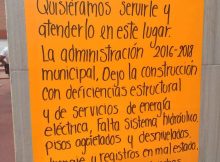 Quisiéramos servirle y
atenderlo en este lugar.
La administración 2016-2018
municipal, Dejo la construcción
con deficiencias estructural
y de servicios de energía
eléctrica, Falta sistema hidráulico,
pisos agrietados y desnivelados,
y registros en mal estado.